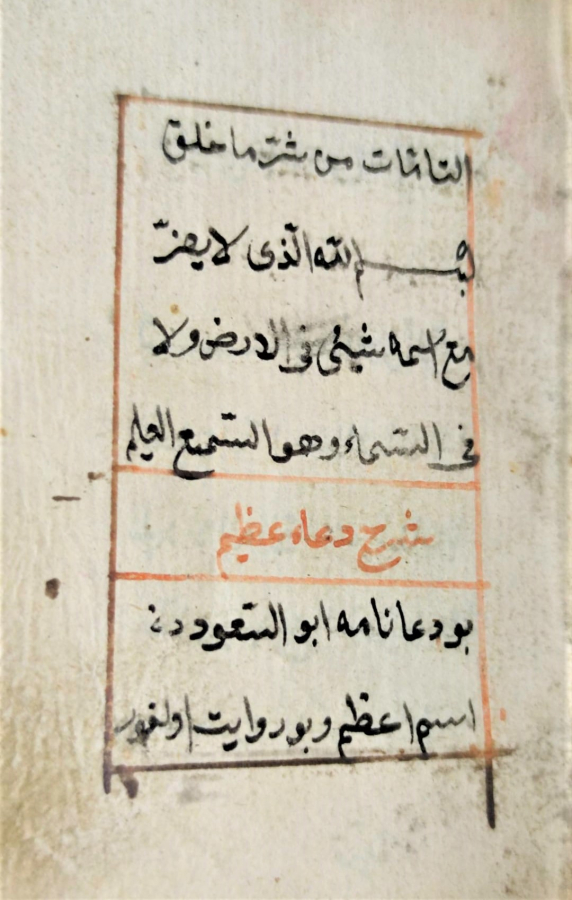 التامّات من شرّ ما خلق
بسم الله الّذى لا يضرّ
مع اسمه شيئ فى الارض ولا
فى السّماء وهو السّميع العليم
شرح دعاء عظيم
بو دعا نامه ابو السّعود دن
اسم اعظم و بو روايت اولنور